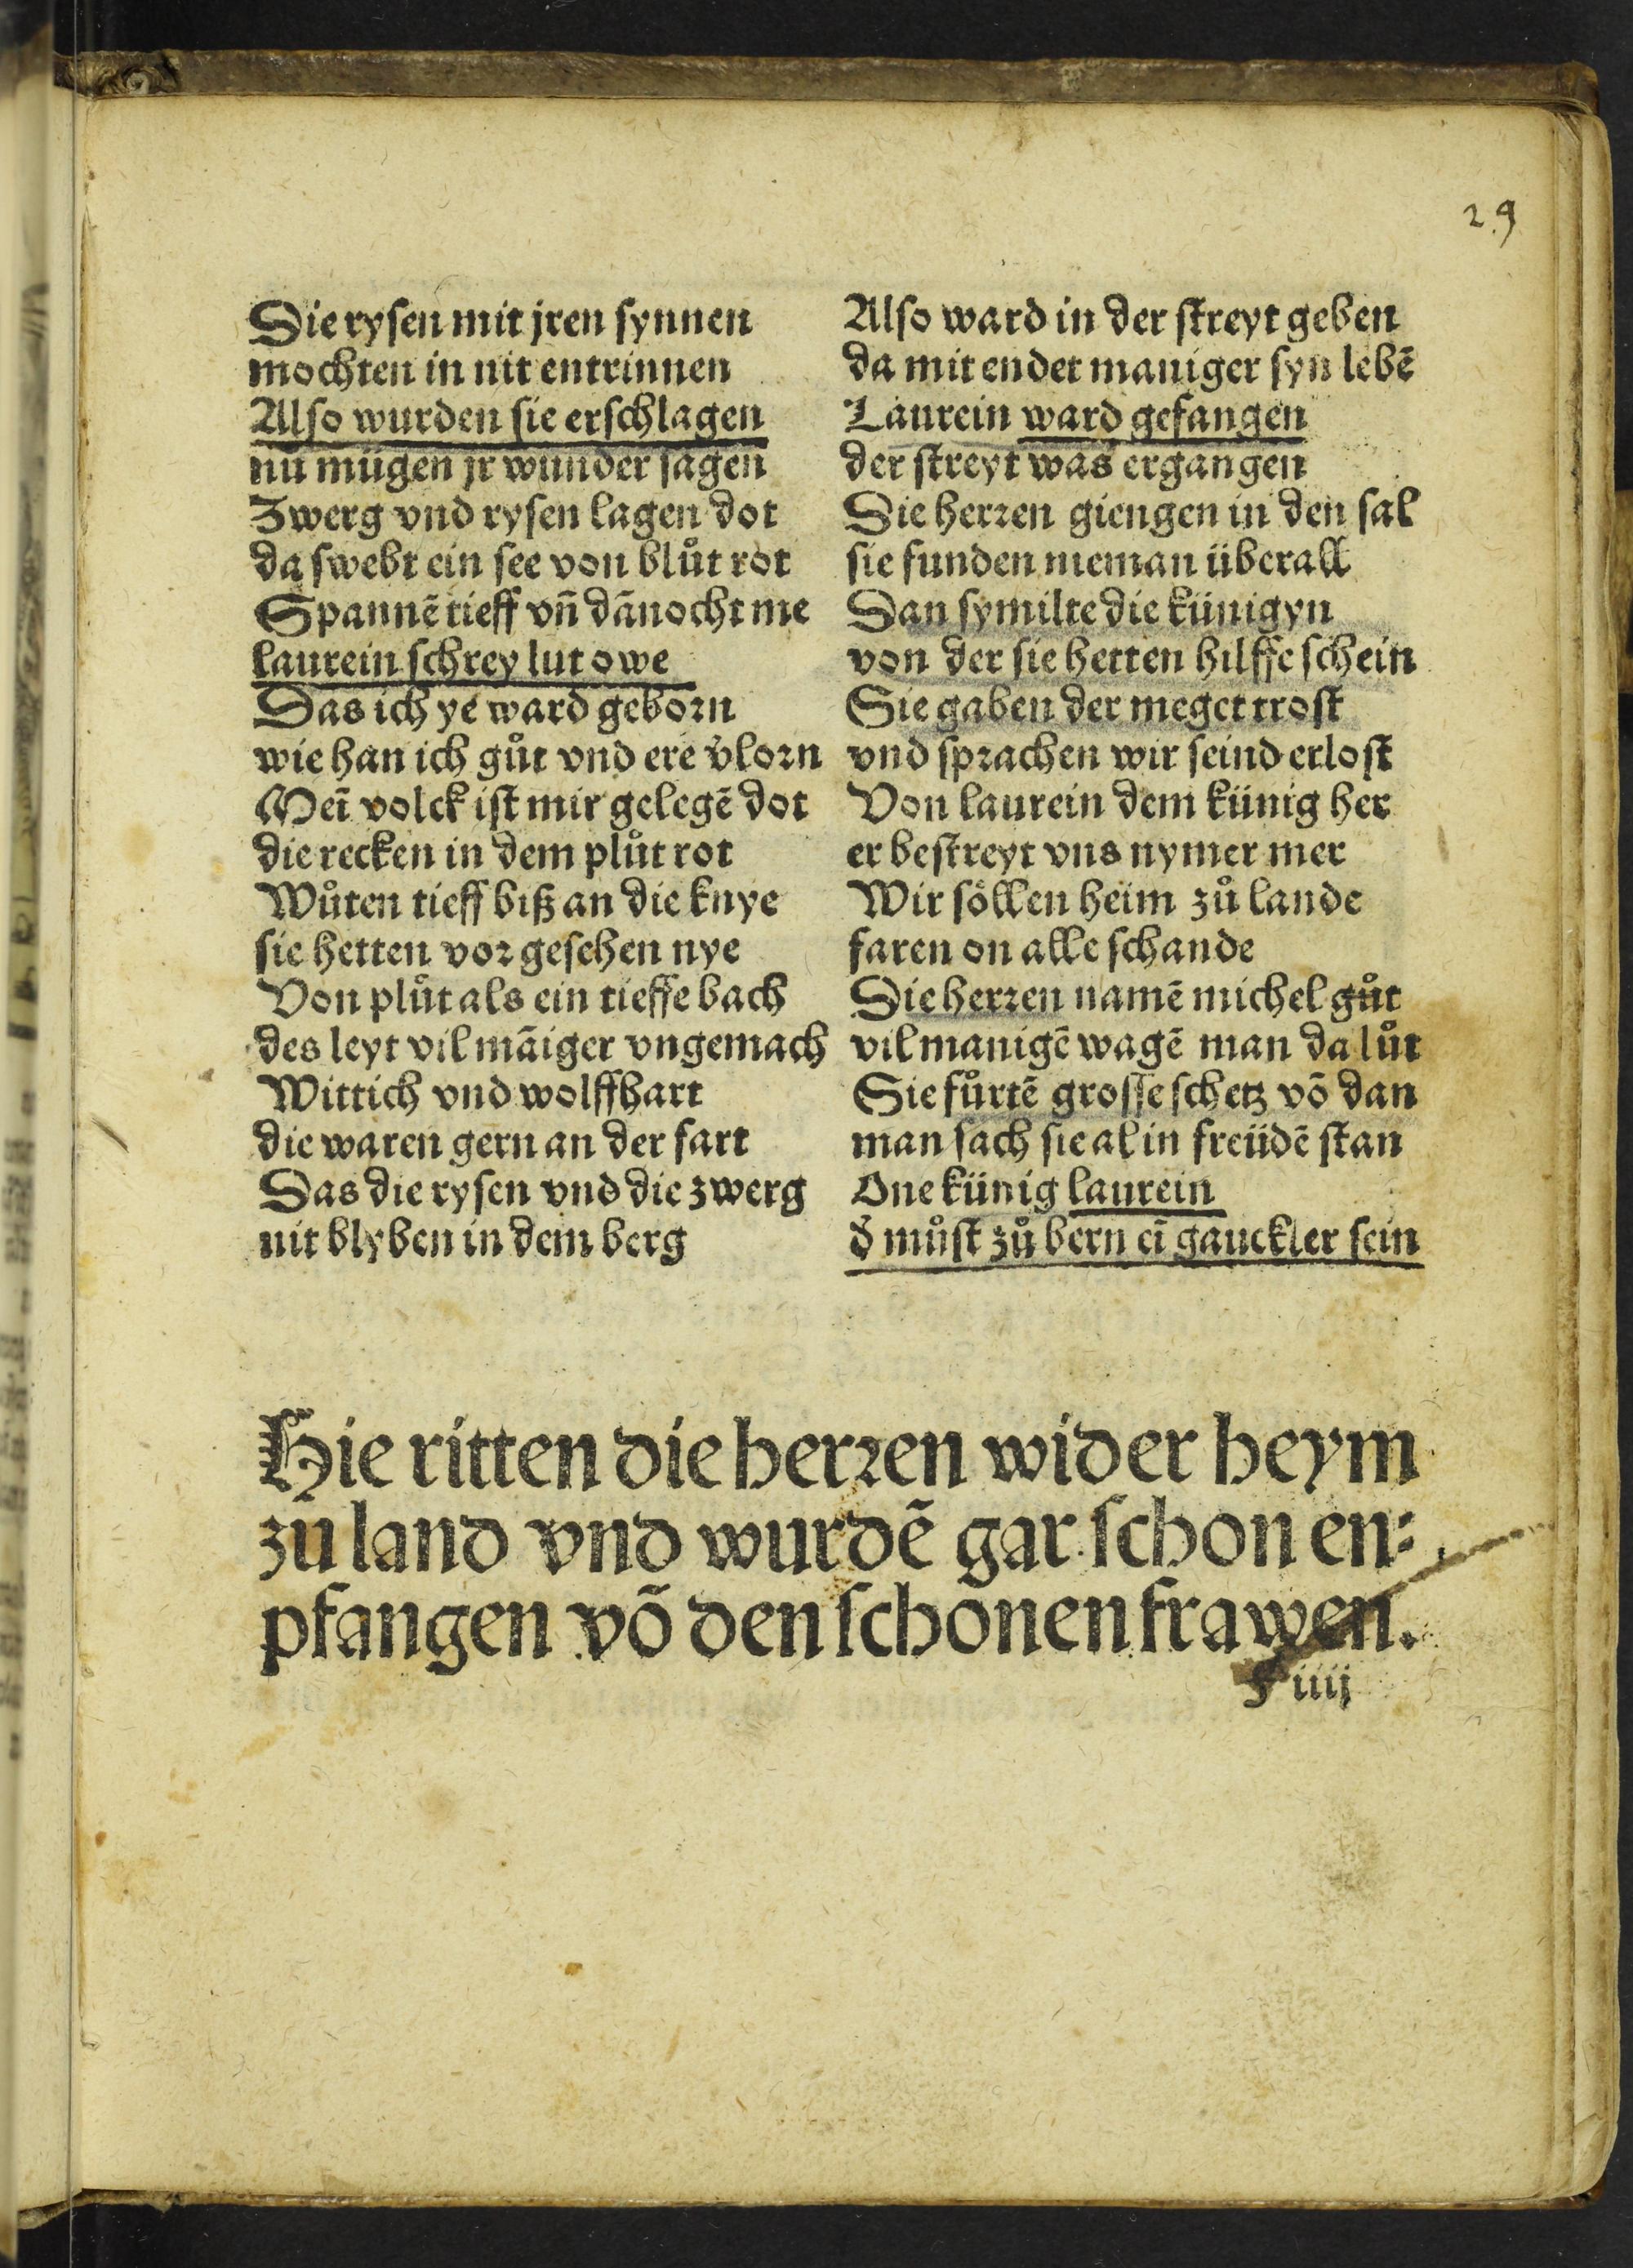 29
Die rysen mit jren synnen
mochten in nit entrinnen
Also wurden sie erschlagen
nu mügen jr wunder sagen
Zwerg vnd rysen lagen dot
da swebt ein see von blůt rot
Spannẽ tieff vñ dãnocht me
laurein schrey lut owe
Das ich ye ward geborn
wie han ich gůt vnd ere v̈lorn
Meĩ volck ist mir gelegẽ dot
die recken in dem plůt rot
Wůten tieff biß an die knye
sie hetten vor gesehen nye
Von plůt als ein tieffe bach
des leyt vil mãiger vngemach
Wittich vnd wolffhart
die waren gern an der fart
Das die rysen vnd die zwerg
nit blyben in dem berg
Also ward in der streyt geben
da mit endet maniger syn lebẽ
Laurein ward gefangen
der streyt was ergangen
Die herren giengen in den sal
sie funden nieman überall
Dan symilte die künigyn
von der sie hetten hilffe schein
Sie gaben der meget trost
vnd sprachen wir seind erlost
Von laurein dem künig her
er bestreyt vns nymer mer
Wir söllen heim zů lande
faren on alle schande
Die herren namẽ michel gůt
vil manigẽ wagẽ man da lůt
Sie fůrtẽ grosse schetz võ dan
man sach sie al in freüdẽ stan
One künig laurein
d̕ můst zů bern eĩ gauckler sein
Hie ritten die herren wider heym
zu land vnd wurdẽ gar schon en⸗
pfangen võ den schonen frawen.
F iiij